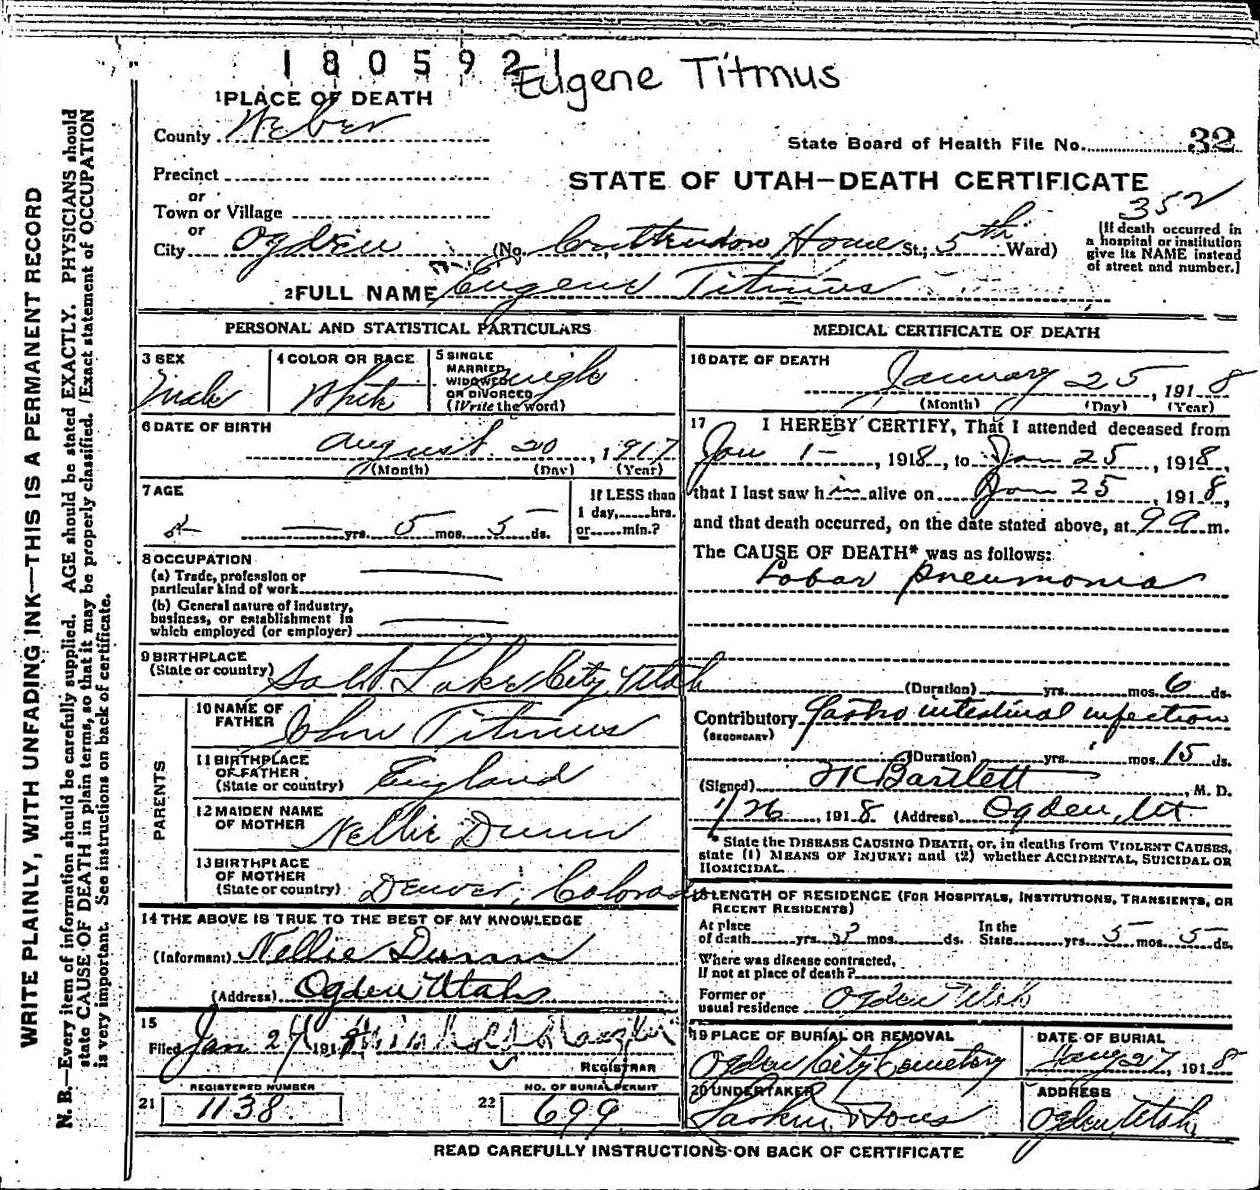 180592
Eugene Titmus
1 PLACE OF DEATH
County Weber
State Board of Health File No. 32
Precinct
or
STATE OF UTAH—DEATH CERTIFICATE
Town or Village
352
or
City Ogden (No. Crittendon Home St.; 5th Ward)
[If death occurred in
a hospital or institution
give its NAME instead
of street and number.]
2 FULL NAME Eugene Titmus
PERSONAL AND STATISTICAL PARTICULARS
3 SEX
Male
4 COLOR OR RACE
White
5 SINGLE
MARRIED
WIDOWED
OR DIVORCED
(Write the word)
Single
6 DATE OF BIRTH
August 20, 1917
(Month) (Day) (Year)
7 AGE
yrs. 5 mos. 5 ds.
If LESS than
1 day, hrs.
or min.?
8 OCCUPATION
(a) Trade, profession or
particular kind of work
(b) General nature of industry,
business, or establishment in
which employed (or employer)
9 BIRTHPLACE
(State or country) Salt Lake City, Utah
PARENTS
10 NAME OF
FATHER John Titmus
11 BIRTHPLACE
OF FATHER
(State or country) England
12 MAIDEN NAME
OF MOTHER Nellie Dunn
13 BIRTHPLACE
OF MOTHER
(State or country) Denver, Colorado
14 THE ABOVE IS TRUE TO THE BEST OF MY KNOWLEDGE
(Informant) Nellie Dunn
(Address) Ogden Utah
15
Filed Jan 27 1918
REGISTRAR
REGISTERED NUMBER
21 1138
NO. OF BURIAL PERMIT
22 699
MEDICAL CERTIFICATE OF DEATH
16 DATE OF DEATH
January 25, 1918
(Month) (Day) (Year)
17 I HEREBY CERTIFY, That I attended deceased from
Jan 1-, 1918, to Jan 25, 1918,
that I last saw him alive on Jan 25, 1918,
and that death occurred, on the date stated above, at 9 a m.
The CAUSE OF DEATH* was as follows:
Lobar pneumonia
(Duration) yrs. mos. 6 ds.
Contributory Gastro intestinal infection
(SECONDARY)
(Duration) yrs. mos. 15 ds.
(Signed) Bartlett, M. D.
1/26, 1918 (Address) Ogden, Ut.
* State the DISEASE CAUSING DEATH, or, in deaths from VIOLENT CAUSES,
state (1) MEANS OF INJURY; and (2) whether ACCIDENTAL, SUICIDAL OR
HOMICIDAL.
18 LENGTH OF RESIDENCE (FOR HOSPITALS, INSTITUTIONS, TRANSIENTS, OR
RECENT RESIDENTS)
At place
of death yrs. mos. ds.
In the
State yrs. 5 mos. 5 ds.
Where was disease contracted,
If not at place of death?
Former or
usual residence Ogden Utah
19 PLACE OF BURIAL OR REMOVAL
Ogden City Cemetery
DATE OF BURIAL
27, 1918
20 UNDERTAKER
Larkin
ADDRESS
Ogden, Utah,
READ CAREFULLY INSTRUCTIONS ON BACK OF CERTIFICATE
WRITE PLAINLY, WITH UNFADING INK—THIS IS A PERMANENT RECORD
N. B.—Every item of information should be carefully supplied. AGE should be stated EXACTLY. PHYSICIANS should
state CAUSE OF DEATH in plain terms, so that it may be properly classified. (Exact statement of OCCUPATION
is very important. See instructions on back of certificate.